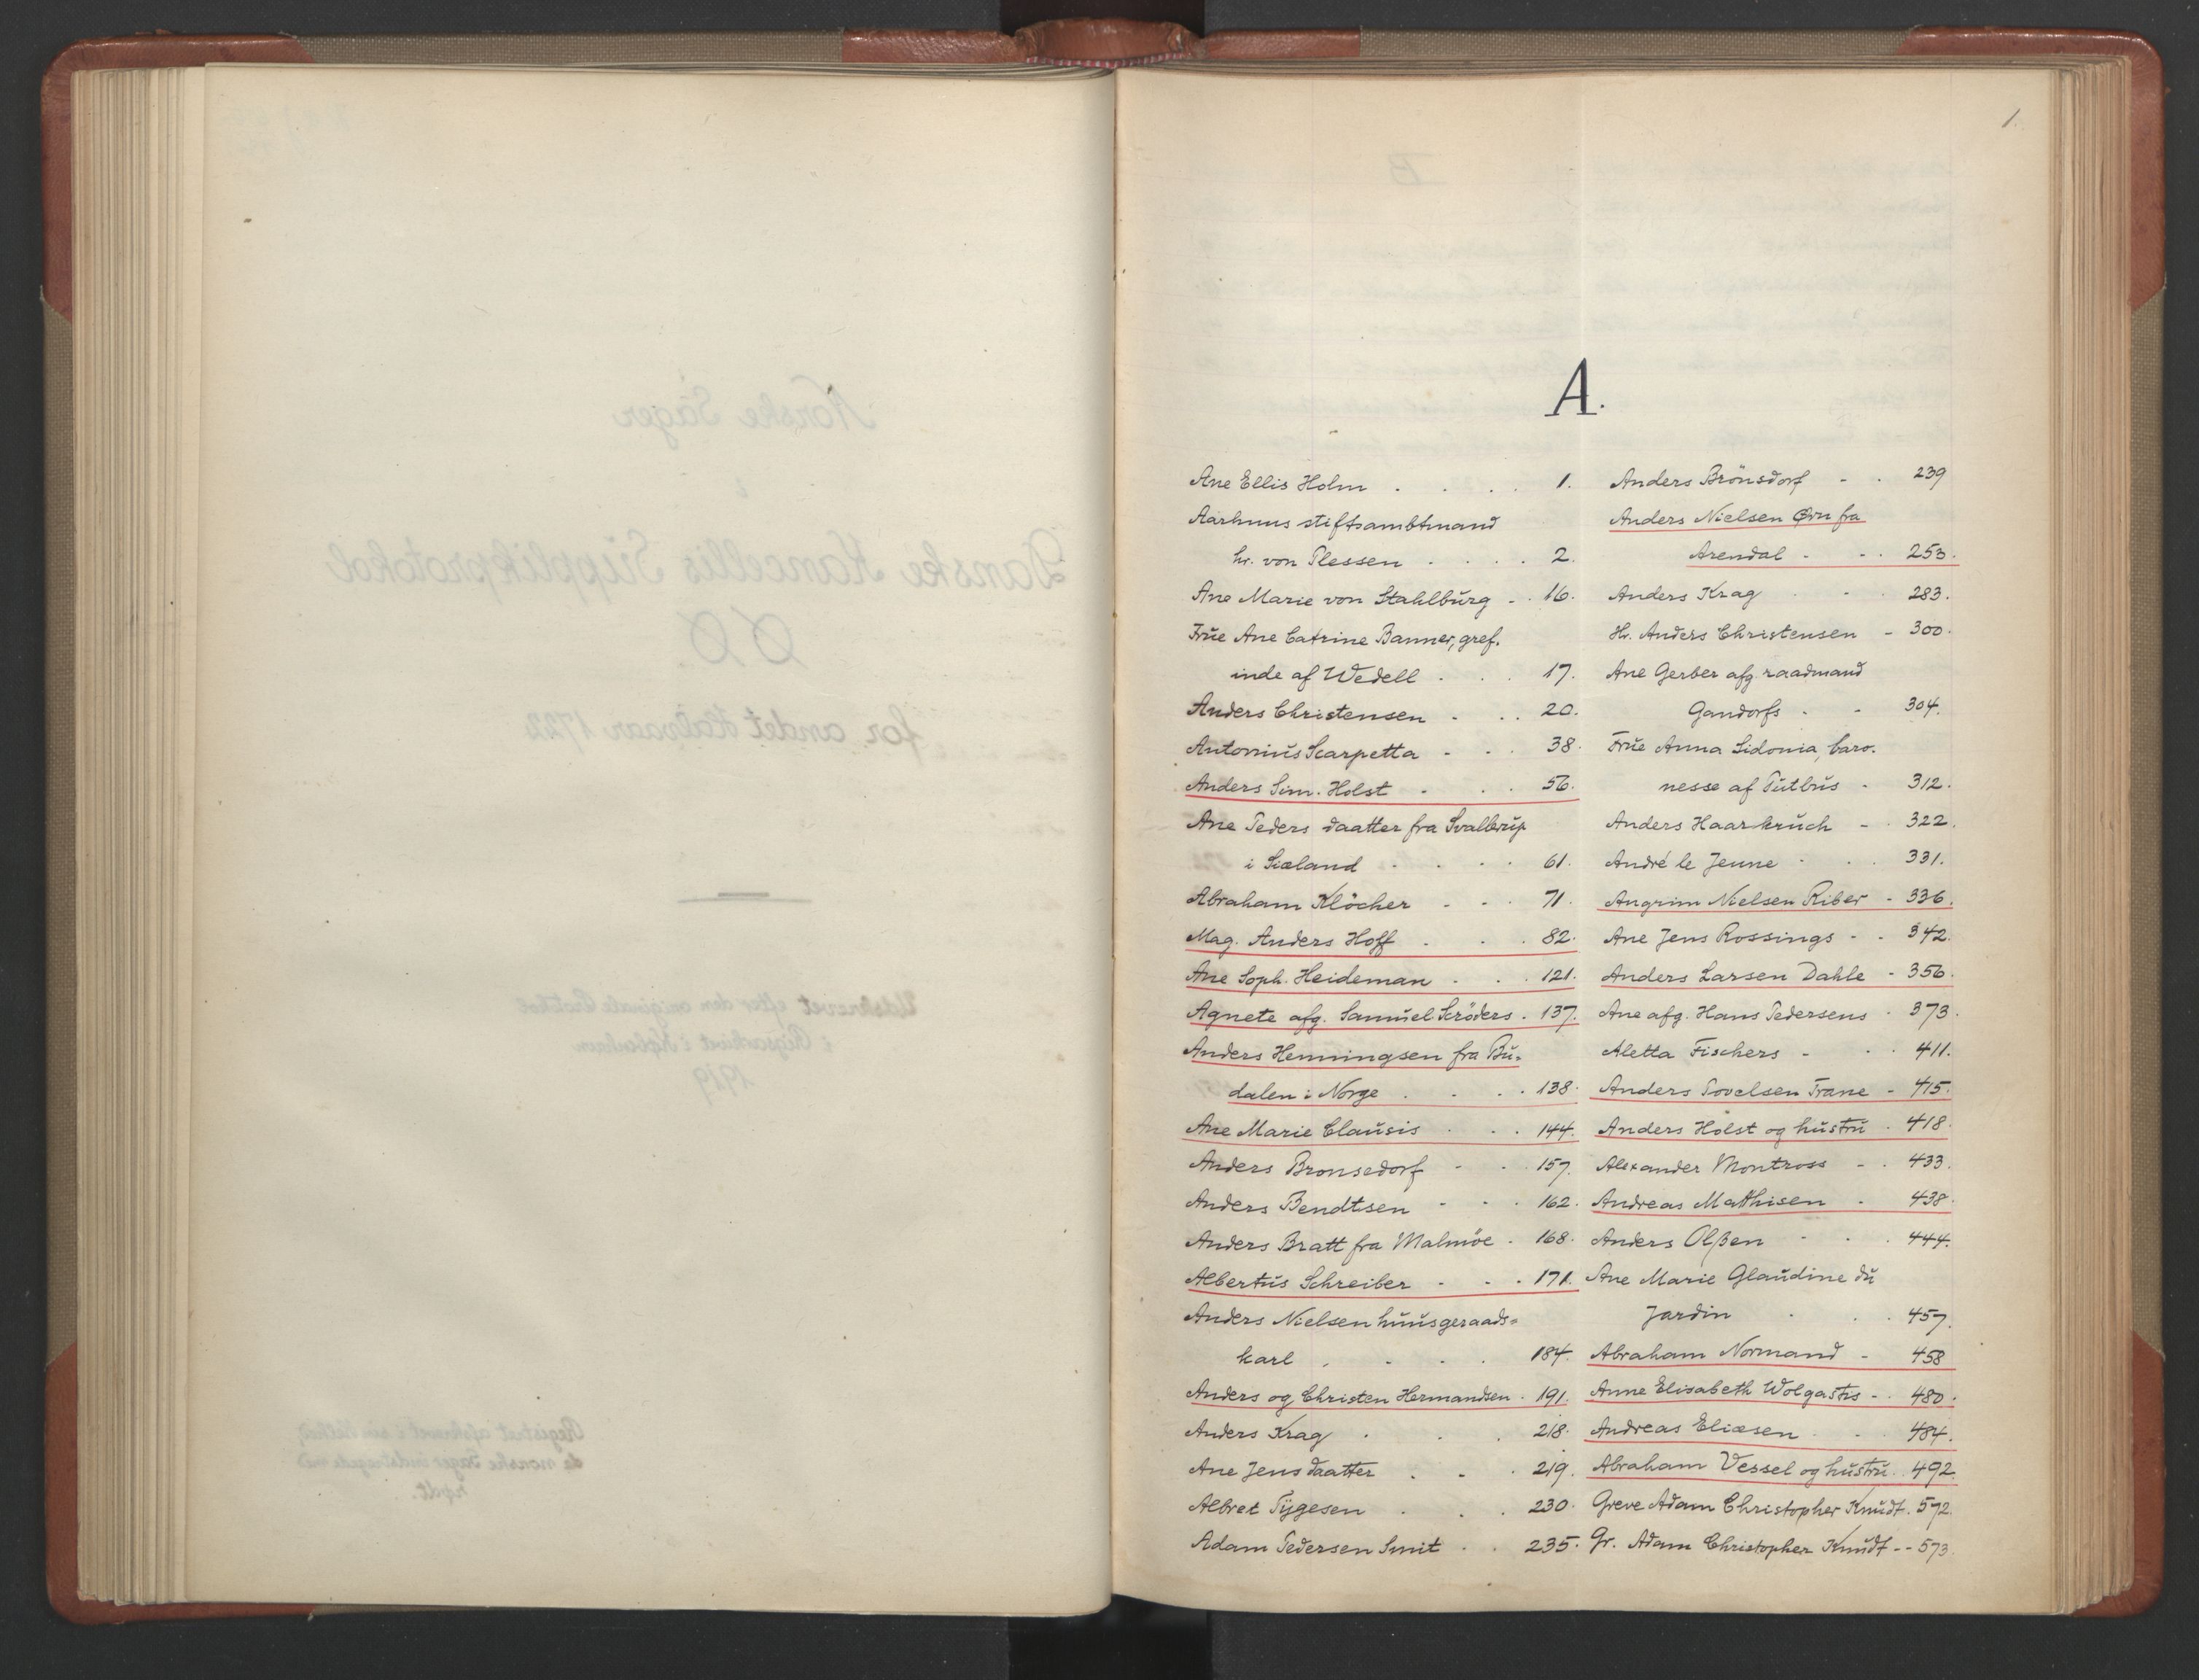 Norske Sager
i
Danske Kancellis Supplikprotokol
for andet Halvaar 1722
Udskrevet efter den originale Protokol
i Rigsarkivet i København
1919
Registret afskrevet i sin Helhed,
de norske Sager understregede med
rødt.
1.
A.
Ane Ellis Holm . . . . 1.
Aarhuus stiftsambtmand
hr. von Plessen . . . . 2.
Ane Marie von Stahlburg - . 16.
Frue Ane Catrine Banner, gref-
inde af Wedell . . . 17.
Anders Christensen - . . 20.
Antonius Scarpetta - - . 38.
Anders Sim. Holst - . . 56.
Ane Peders daatter fra Svallerup
i Siæland . . . . 61.
Abraham Klöcher - - . 71.
Mag. Anders Hoff . . . 82.
Ane Soph. Heideman . . . 121.
Agnete afg. Samuel Scröders . 137.
Anders Henningsen fra Bu-
dalen i Norge . . . . 138.
Ane Marie Clausis . . . 144.
Anders Bronsedorf - . . 157.
Anders Bendtsen - - . 162.
Anders Bratt fra Malmöe . 168.
Albertus Schreiber - . . 171.
Anders Nielsen huusgeraads-
karl . - . . 184.
Anders og Christen Hermandsen . 191.
Anders Krag . . . 218.
Ane Jens daatter . - . 219.
Albret Tÿgesen . . . 230.
Adam Pedersen Smit . . 235.
Anders Brönsdorf - . 239
Anders Nielsen Ørn fra
Arendal - - . 253.
Anders Krag . - . 283.
Hr. Anders Christensen - 300.
Ane Gerber afg. raadmand
Gandorfs . - 304.
Frue Anna Sidonia, baro-
nesse af Putbus - 312.
Anders Haarkruch - . 322.
André le Jeune . . . 331.
Angrim Nielsen Riber - 336.
Ane Jens Rossings - . 342.
Anders Larsen Dahle - 356.
Ane afg. Hans Pedersens . 373.
Aletta Fischers - . . 411.
Anders Povelsen Trane - 415.
Anders Holst og hustru . 418.
Alexander Montross - . 433.
Andreas Matthisen - 438.
Anders Olßen - . . 444.
Ane Marie Glaudine du
Jardin . . . 457.
Abraham Normand - 458
Anne Elisabeth Wolgastis - . 480.
Andreas Eliæsen . . . 484.
Abraham Vessel og hustru . . 492.
Greve Adam Christopher Knudt . 572.
Gr. Adam Christopher Knudt - - 573.